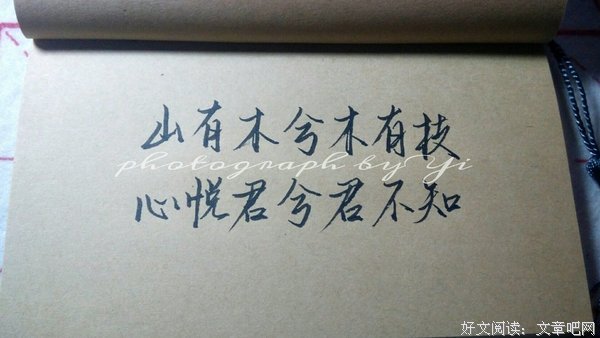 山有木兮木有技
photograph by Yi
心悦君兮君不知
好文阅读：文章吧网